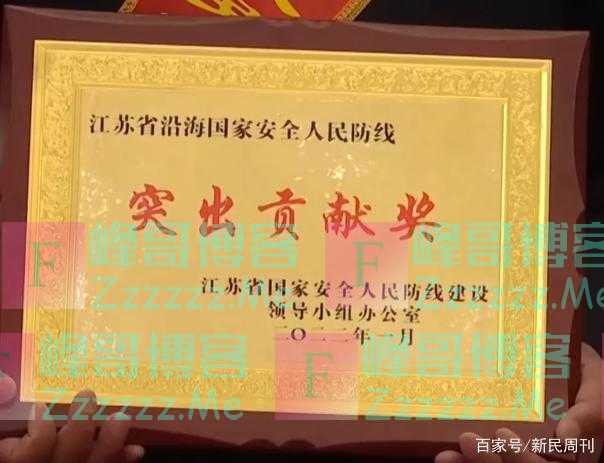 江苏省沿海国家安全人民防线
突出贡献奖
F 峰哥博客
Zzzzzz.Me
F 峰哥博客
Zzzzzz.Me
江苏省国家安全人民防线建设
领导小组办公室
二〇二二年 月
F 峰哥博客
Zzzzzz.Me
F 峰哥博客
Zzzzzz.Me
百家号/新民周刊